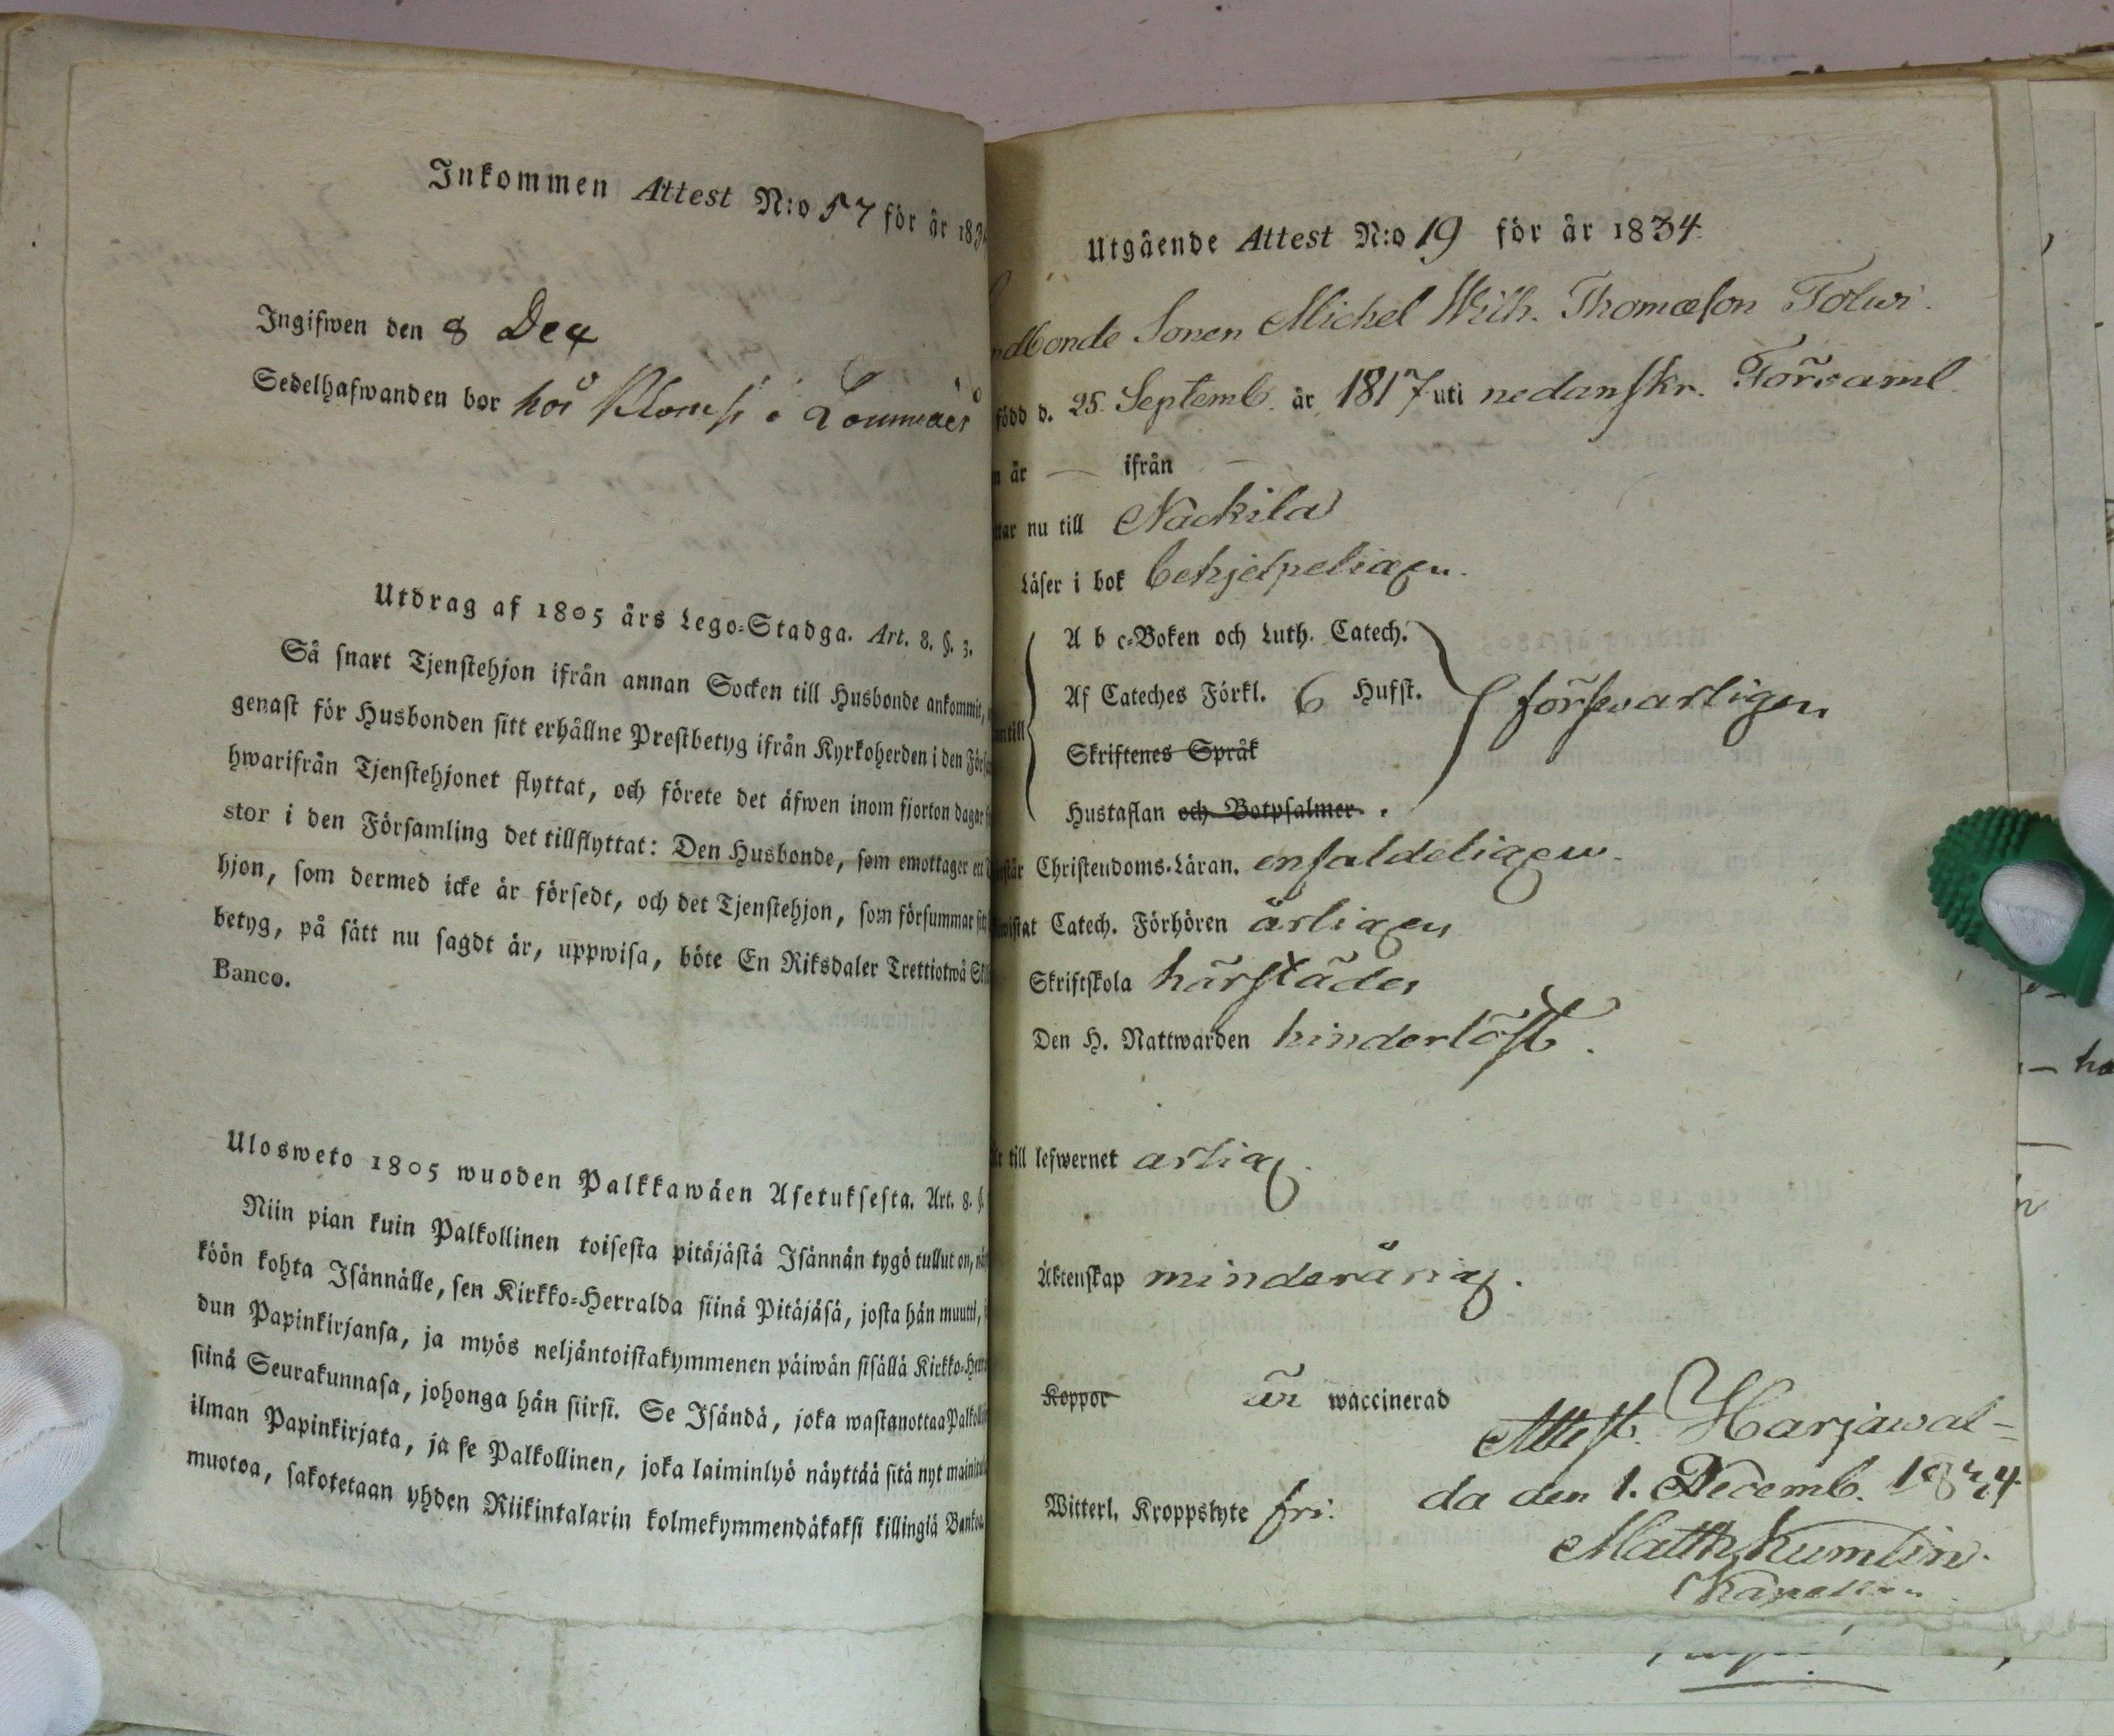 Inkommen Attest N:o 57 för år 183
Ingifwen den 8 Dec
Sedelhafwanden bor hos i
Utdrag af 1805 års Lego-Stadga. Art. 8. §. 3.
Så snart Tjenstehjon ifrån annan Socken till Husbonde ankommit,
genast för Husbonden sitt erhållne Prestbetyg ifrån Kyrkoherden i den Förs
hwarifrån Tjenstehjonet flyttat, och förete det äfwen inom fjorton dagar
stor i den Församling det tillflyttat: Den Husbonde, som emottager ett
hjon, som dermed icke är försedt, och det Tjenstehjon, som försummar sitt
betyg, på sätt nu sagdt är, uppwisa, böte En Riksdaler Trettiotwå Sk
Banco.
Ulosweto 1805 wuoden Palkkawäen Asetuksesta. Art. 8. §.
Niin pian kuin Palkollinen toisesta pitäjästä Isännän tygö tullut on,
köön kohta Isännälle, sen Kirkko-Herralda siinä Pitäjäsä, josta hän muutti,
dun Papinkirjansa, ja myös neljäntoistakymmenen päiwän sisällä Kirkko-Herra
siinä Seurakunnasa, johonga hän siirsi. Se Isändä, joka wastanottaa Palkolli
ilman Papinkirjata, ja se Palkollinen, joka laiminlyö näyttää sitä nyt mainitu
muotoa, sakotetaan yhden Riikintalarin kolmekymmendäkaksi killingiä Bankoa
Utgående Attest N:o 19 för år 1834.
ndbonde Sonen Michel Wilh. Thomæson Tolwi.
född d. 25. Septemb. år 1817 uti nedanskr. Församl
n år — ifrån —
ttar nu till Nackila
Läser i bok behjelpeligen.
A b c-Boken och Luth. Catech.
Af Cateches Förkl. 6 Hufst. försvarligen
antill
Skriftenes Språk
Hustaflan och Botpsalmer.
står Christendoms-Läran. enfaldeligen.
wistat Catech. Förhören årligen
Skriftskola härstädes
Den H. Nattwarden hinderlöst.
Är till lefwernet ärlig.
Äktenskap minderårig.
Koppor är waccinerad
Attest. Harjawal-
da den 1. Decemb. 1834
Witterl. Kroppslyte fri.
Matth. Kumlin.
Kapellan